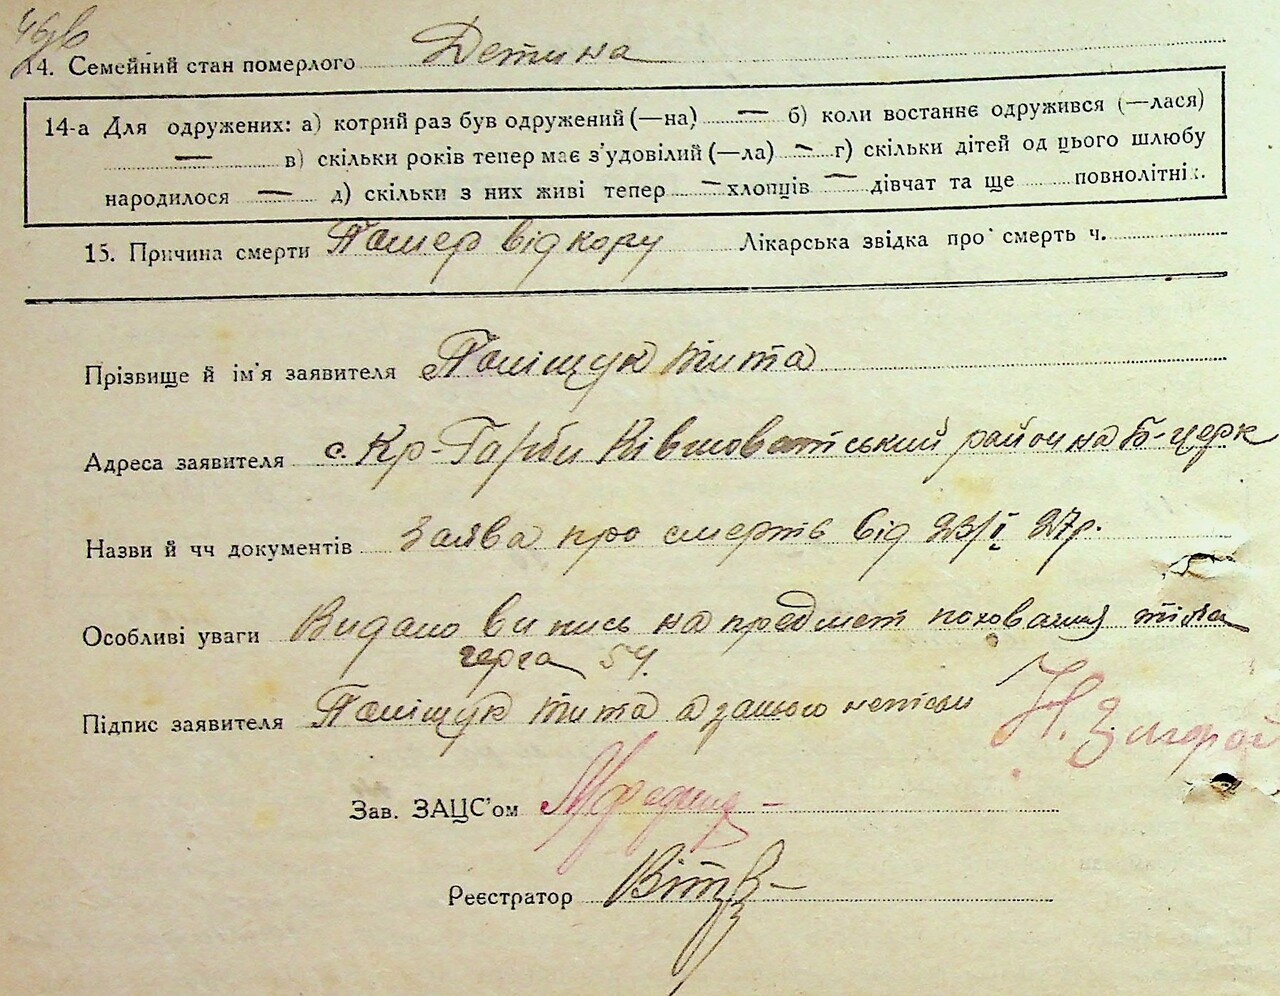 14. Семейний стан померлого Детина
14-а Для одружених: а) котрий раз був одружений (—на) — б) коли востаннє одружився (—лася)
— в) скільки років тепер має з'удовілий (—ла) — г) скільки дітей од цього шлюбу
народилося — д) скільки з них живі тепер — хлопців — дівчат та ще повнолітніх.
15. Причина смерти Помер від кору Лікарська звідка про смерть ч.
Прізвище й ім'я заявителя Поліщук Тита
Адреса заявителя с. Кр-Гарби Ківшоватський район на Б-церк
Назви й чч документів Заява про смерть від 23/I 27р.
Особливі уваги Видано випись на предмет поховання тіла
черга 54.
Підпис заявителя Поліщук Тита а за нього неписьм
Зав. ЗАЦС'ом
Реєстратор